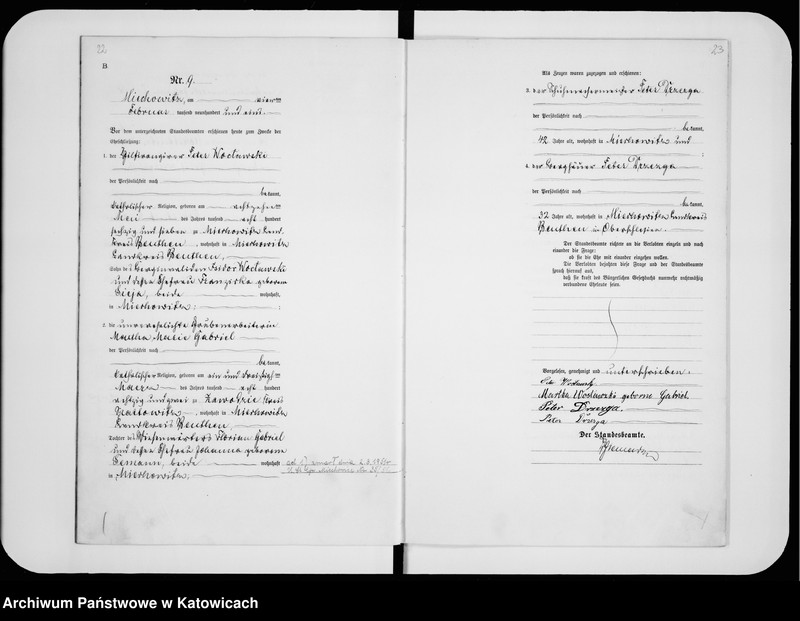 22
B.
Nr. 9.
Miechowitz, am vierten
Februar tausend neunhundert und eins
Vor dem unterzeichneten Standesbeamten erschienen heute zum Zwecke der
Eheschließung:
1. der Peter Woclawski
der Persönlichkeit nach
be kannt,
katholischer Religion, geboren am achtzehnten
Mai des Jahres tausend acht hundert
sechzig und sieben zu Miechowitz Land
kreis Beuthen, wohnhaft in Miechowitz
Landkreis Beuthen,
Sohn des Berginvaliden Isidor Woclawski
und dessen Ehefrau Franziska geborenen
beide wohnhaft
in Miechowitz;
2. die unverehelichte Grubenarbeiterin
Martha Marie Gabriel
der Persönlichkeit nach
be kannt,
katholischer Religion, geboren am ein und dreißigsten
März des Jahres tausend acht hundert
achtzig und zwei zu Zawodzie Kreis
Kattowitz, wohnhaft in Miechowitz
Landkreis Beuthen,
Tochter des Florian Gabriel
und dessen Ehefrau Johanna geborenen
Siemann, beide wohnhaft
in Miechowitz.
23
Als Zeugen waren zugezogen und erschienen:
3. der Schuhmachermeister Peter Drzezga
der Persönlichkeit nach
be kannt,
42 Jahre alt, wohnhaft in Miechowitz und
4. der Berghäuer Peter Drzezga
der Persönlichkeit nach
be kannt,
32 Jahre alt, wohnhaft in Miechowitz Landkreis
Beuthen in Oberschlesien.
Der Standesbeamte richtete an die Verlobten einzeln und nach
einander die Frage:
ob sie die Ehe mit einander eingehen wollen.
Die Verlobten bejahten diese Frage und der Standesbeamte
sprach hierauf aus,
daß sie kraft des Bürgerlichen Gesetzbuchs nunmehr rechtmäßig
verbundene Eheleute seien.
Vorgelesen, genehmigt und unterschrieben:
Martha Woclawski geborene Gabriel
Peter Drzezga.
Peter Drzezga
Der Standesbeamte.
Archiwum Państwowe w Katowicach